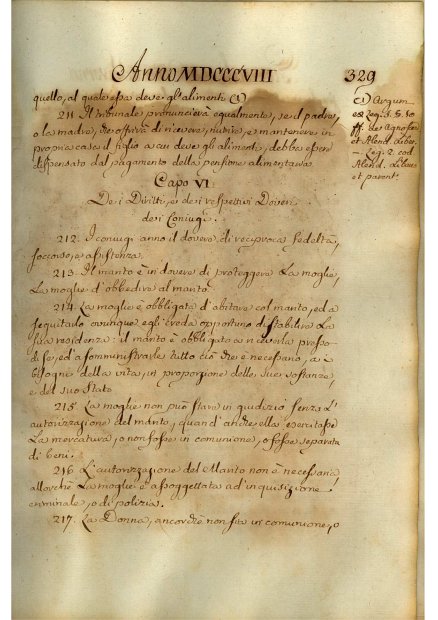 Anno MDCCCVIII
329
quello, al quale essa deve gl'alimenti (1)
211 Il tribunale pronuncierà egualmente, se il padre,
o la madre, che offrirà di ricevere, nutrire, e mantenere in
propria casa il figlio a cui deve gli alimenti, debba esser
dispensato dal pagamento della pensione alimentaria.
Capo VI
Dei Diritti, e dei respettivi Doveri
dei Coniugi.
212. I coniugi anno il dovere di reciproca Fedeltà,
soccorso, e assistenza.
213 Il marito è in dovere di proteggere La moglie,
La moglie d'obbedire al marito.
214. La moglie è obbligata d'abitare col marito, ed a
seguitarlo ovunque egli creda opportuno di stabilire La
sua residenza: il marito è obbligato a riceverla presso
di se, ed a somministrarle tutto ciò che è necessario, a i
bisogni della vita, in proporzione delle sue sostanze,
e del suo Stato
215. La moglie non può stare in giudizio senza L'
autorizzazione del marito, quand'anche ella esercitasse
La mercatura, o non fosse in comunione, o fosse separata
di beni.
216 L'autorizzazione del Marito non è necessaria,
allorchè La moglie è assoggettata ad inquisizione
criminale, o di polizia.
217. La Donna, ancorchè non sia in comunione, o
(1) Argum
ex Leg. 5. §. 10
ff. de Agnoscen
et Alend. Liber.
Leg. 2. cod.
Alend. Liberis
et parent.